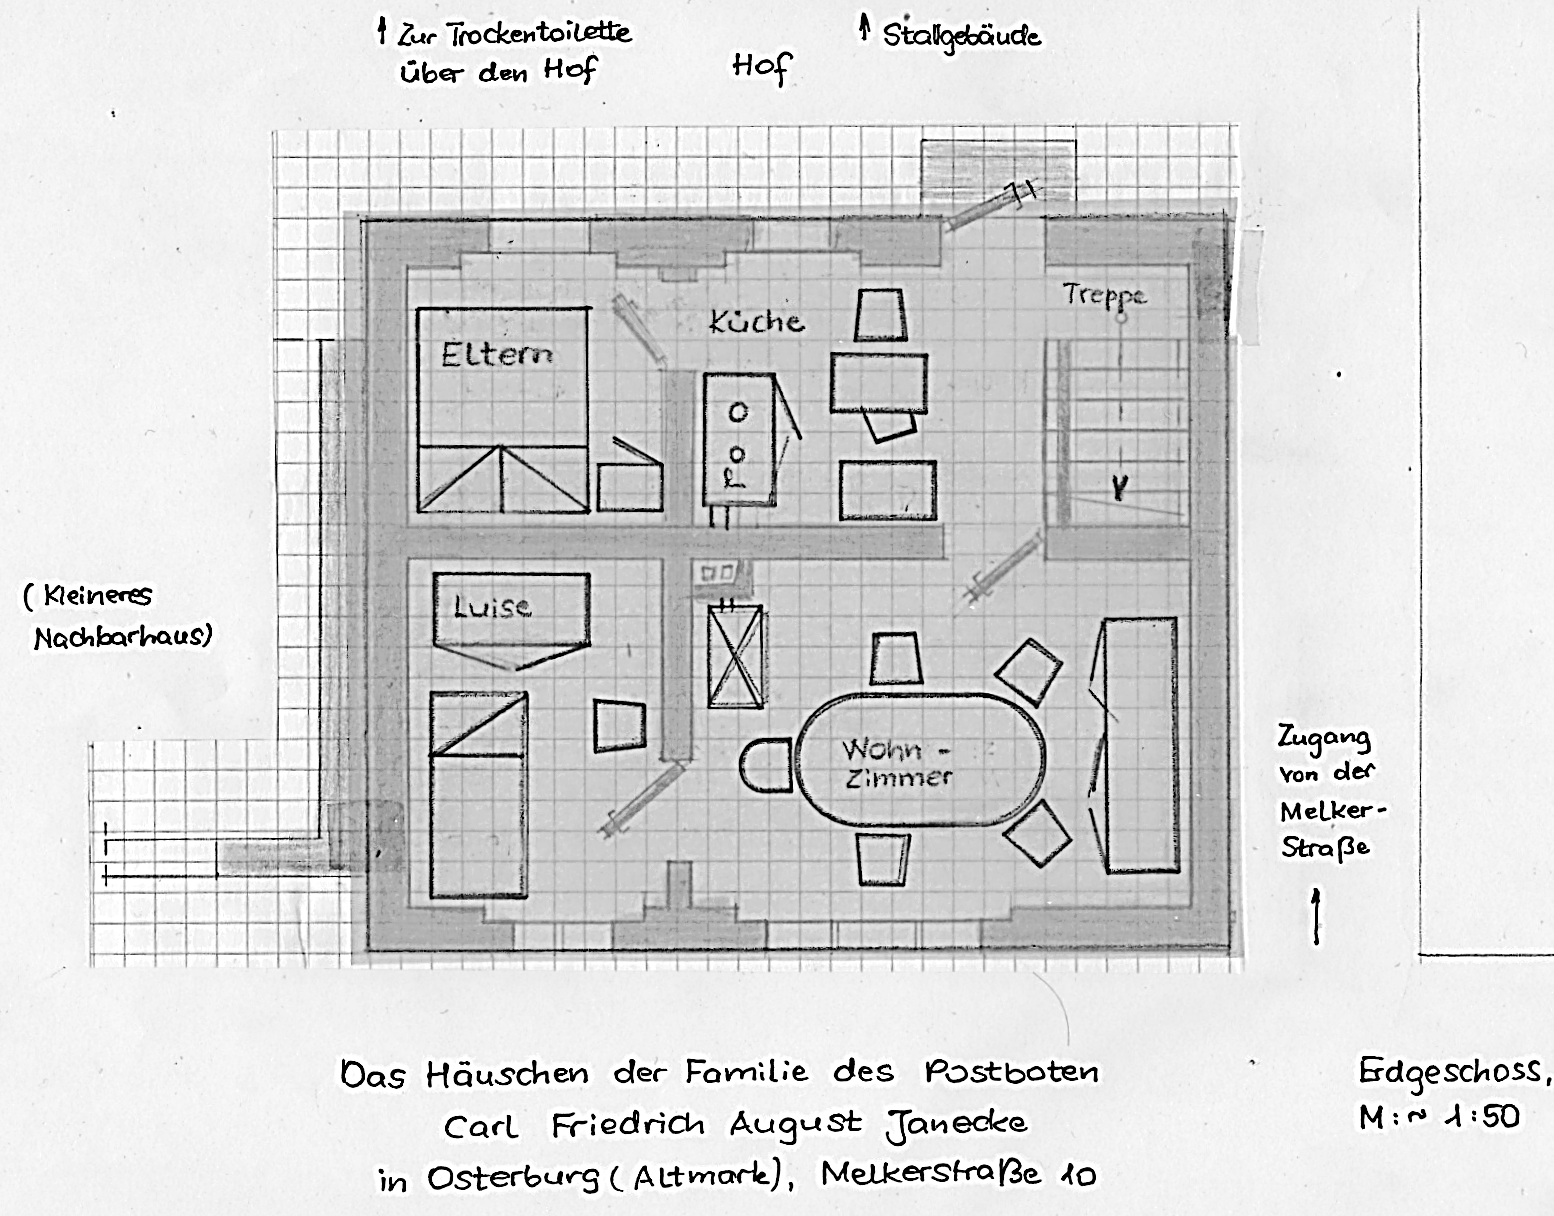 Zur Trockentoilette
über den Hof
Hof
Stallgebäude
Küche
Treppe
Eltern
Luise
Wohn-
Zimmer
(Kleineres
Nachbarhaus)
Zugang
von der
Melker-
Straße
Das Häuschen der Familie des Postboten
Carl Friedrich August Janecke
in Osterburg (Altmark), Melkerstraße 10
Erdgeschoss,
M:~ 1:50